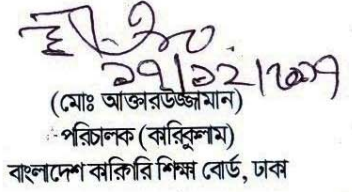 ১৭/১২/২০১৭
(মোঃ আক্তারউজ্জামান)
পরিচালক (কারিকুলাম)
বাংলাদেশ কারিগরি শিক্ষা বোর্ড, ঢাকা